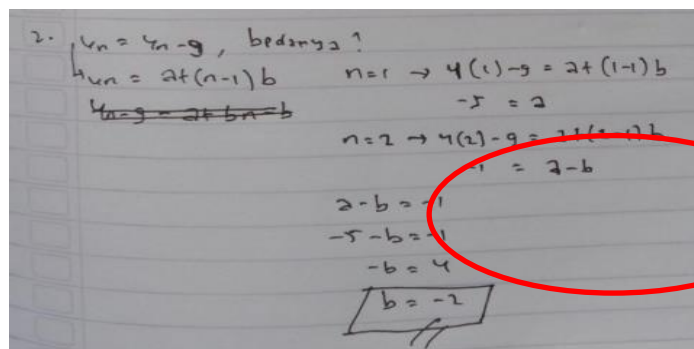 2. Un = 4n-9, bedanya?
Un = a+(n-1)b
4n-9 = a+bn-b
n=1 → 4(1)-9 = a+(1-1)b
-5 = a
n=2 → 4(2)-9 = a+(2-1)b
-1 = a-b
a-b = -1
-5-b = -1
-b = 4
b = -2